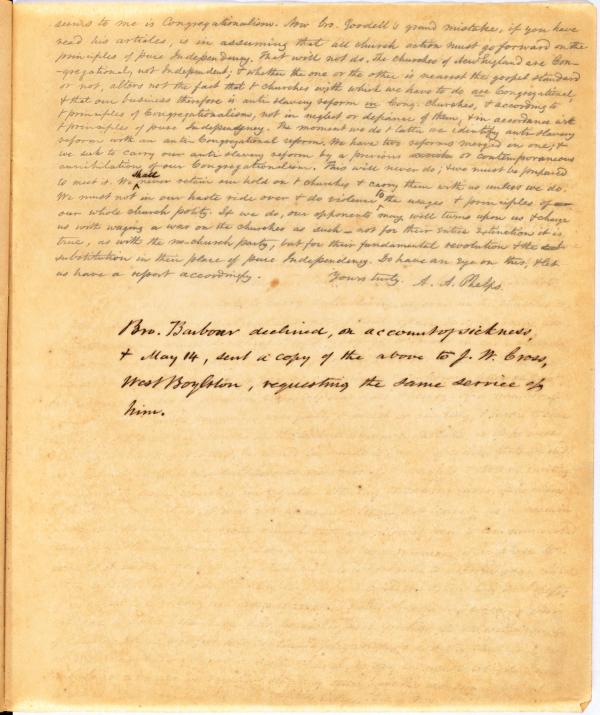 seems to me is Congregationalism. Now Bro. Goodell's grand mistake, if you have
read his articles, is in assuming that all church action must go forward on the
principles of pure Independency. That will not do. The churches of New England are Con-
-gregational, not Independent; & whether the one or the other is nearest the gospel standard
or not, alters not the fact that the churches with which we have to do are Congregational,
& that our business therefore is anti slavery reform in Cong. churches, & according to
the principles of Congregationalism, not in neglect or defiance of them, & in accordance with
the principles of pure Independency. The moment we do the latter we identify anti slavery
reform with an anti-Congregational reform. We have two reforms merged in one; &
we seek to carry our anti slavery reform by a previous or contemporaneous
annihilation of our Congregationalism. This will never do; & we must be prepared
to meet it. We shall never retain our hold on the churches & carry them with us unless we do.
We must not in our haste ride over & do violence to the usages & principles of
our whole church polity. If we do, our opponents may well turn upon us & charge
us with waging a war on the churches as such – not for their entire extinction it is
true, as with the no-church party, but for their fundamental revolution & the
substitution in their place of pure Independency. Do have an eye on this, & let
us have a report accordingly. Yours truly. A. A. Phelps.
Bro. Barbour declined, on account of sickness,
& May 14, sent a copy of the above to J. W. Cross,
West Boylston, requesting the same service of
him.